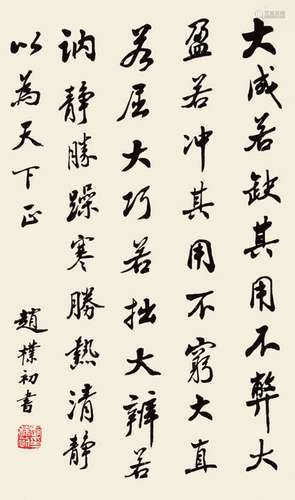 大成若缺其用不弊大
盈若冲其用不窮大直
若屈大巧若拙大辯若
訥静勝躁寒勝熱清静
以為天下正
趙樸初书